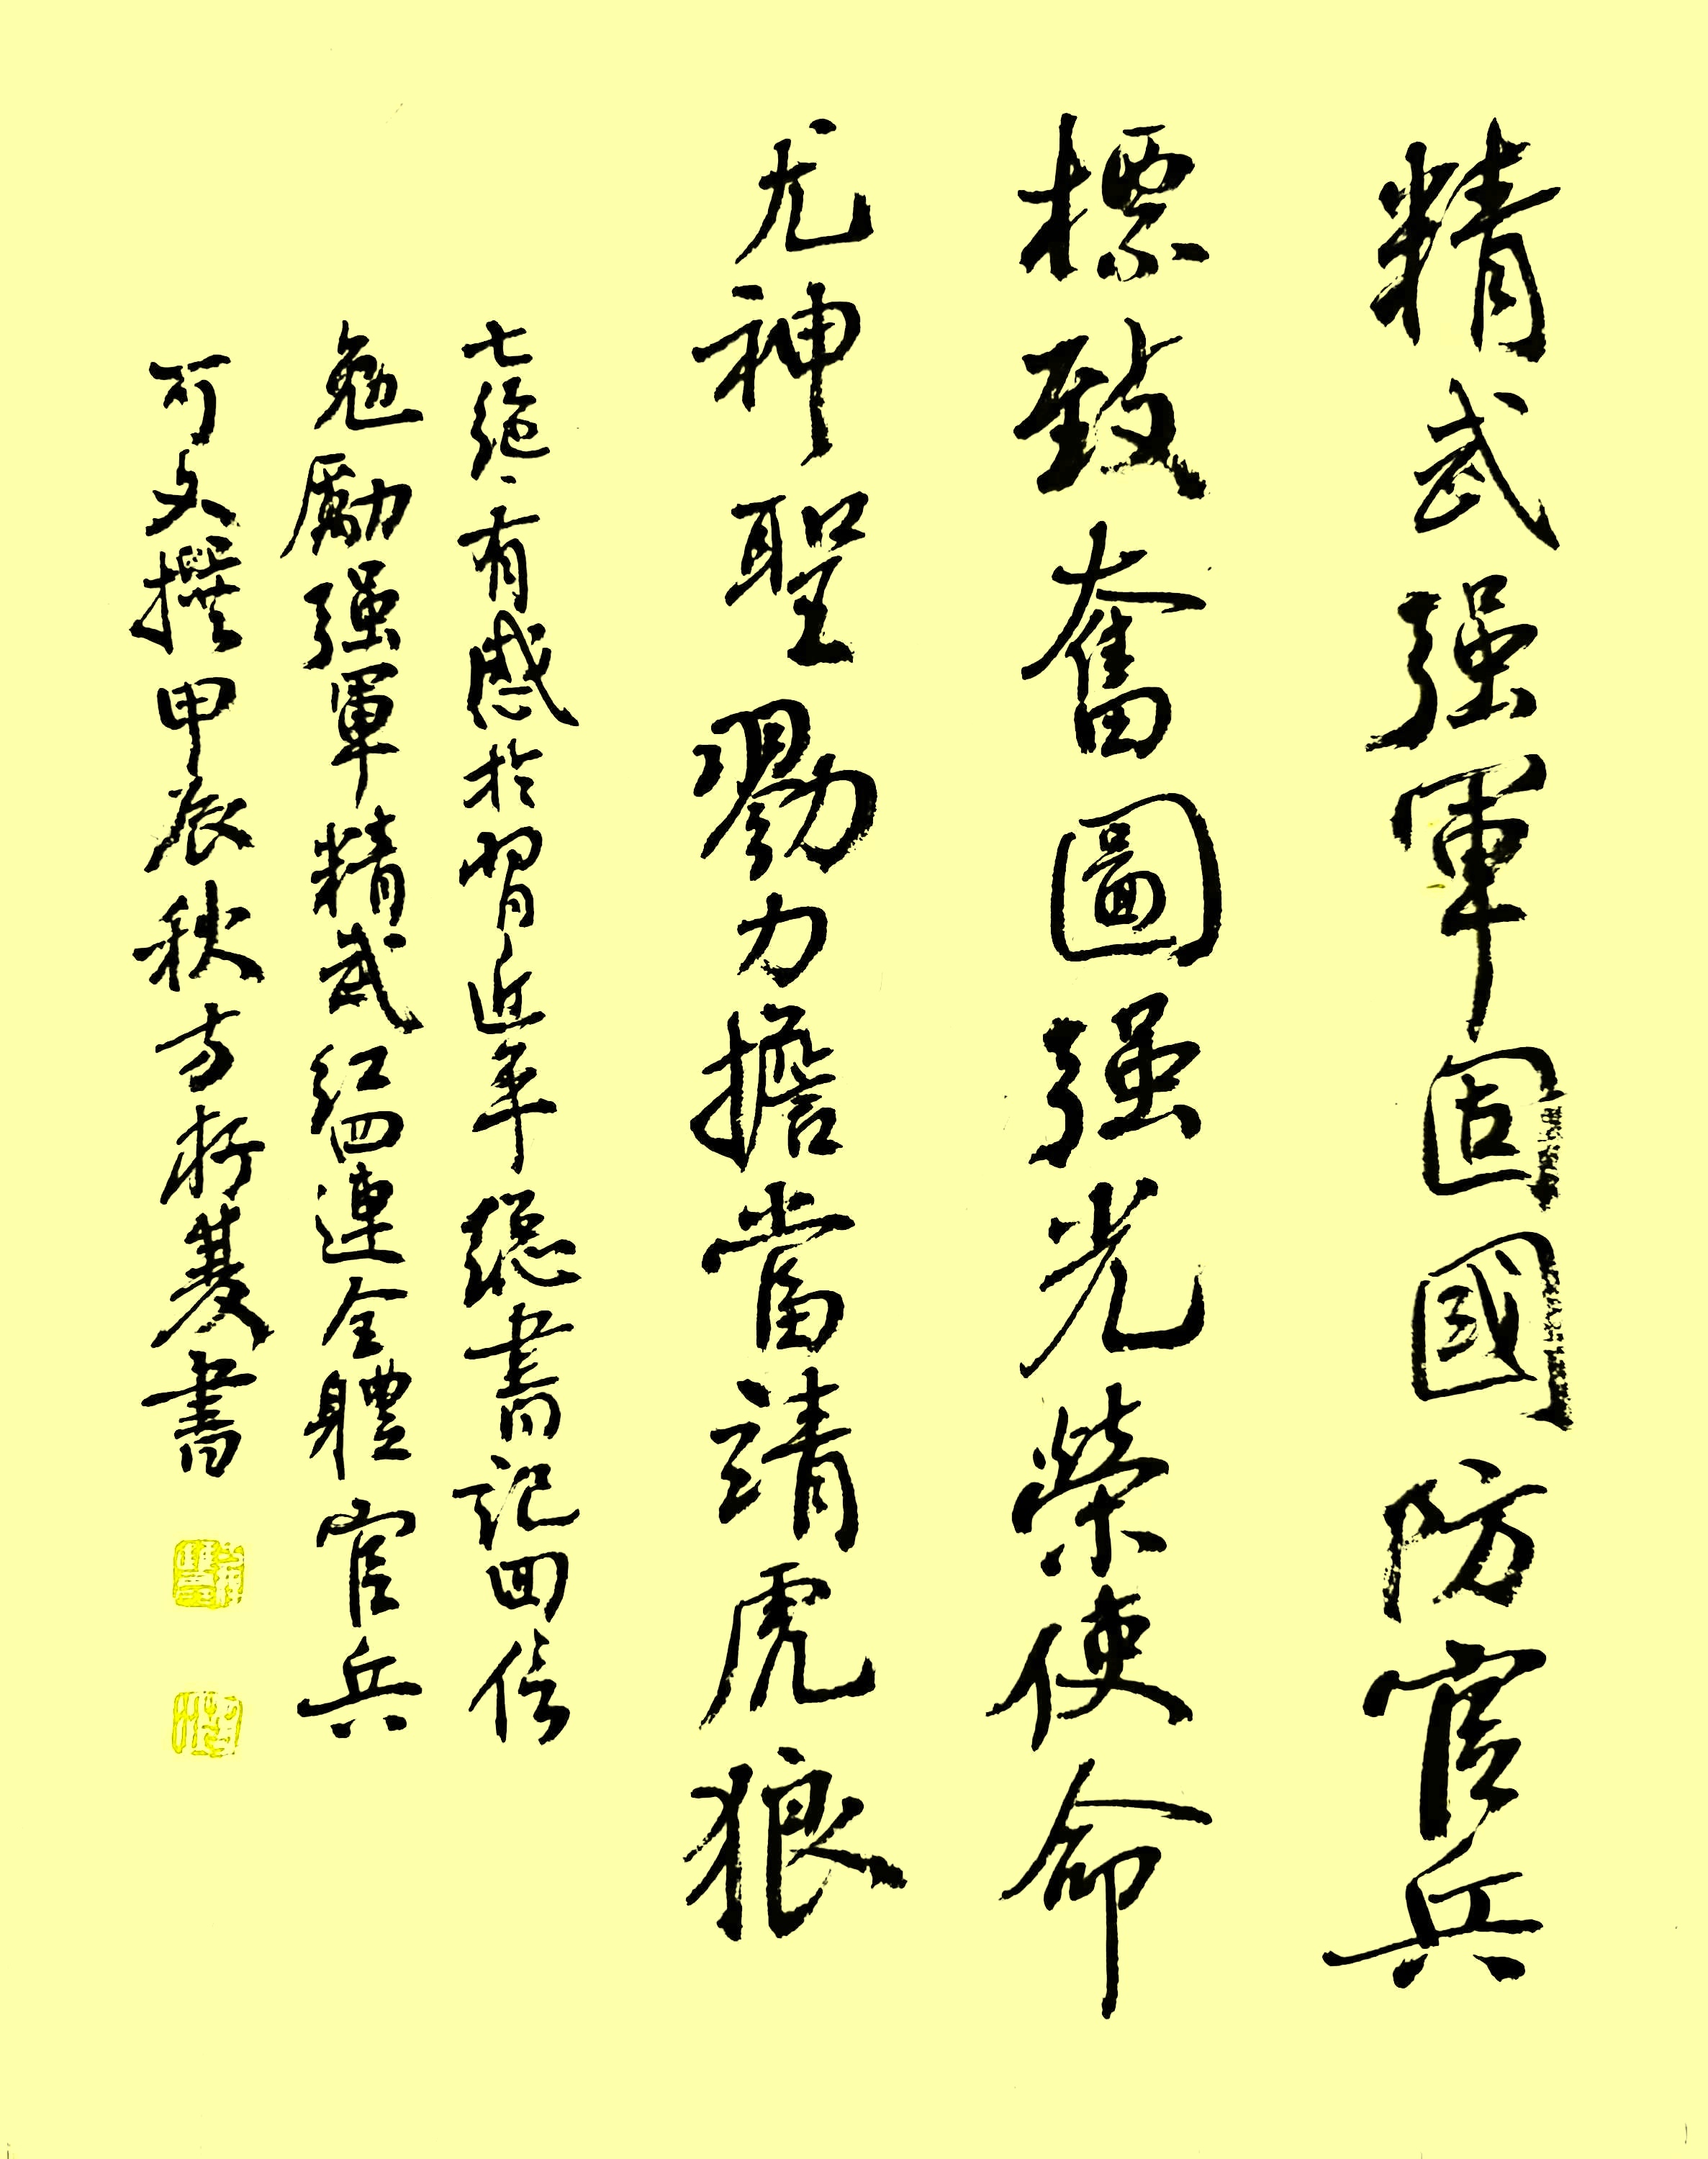 精武强軍固國防官兵
標致奮圖强光榮使命
尤神聖勠力擔當靖虎狼
七絶·有感於習近平總書記回信
勉勵强軍精武紅四連全體官兵
可文撰甲辰秋方
書